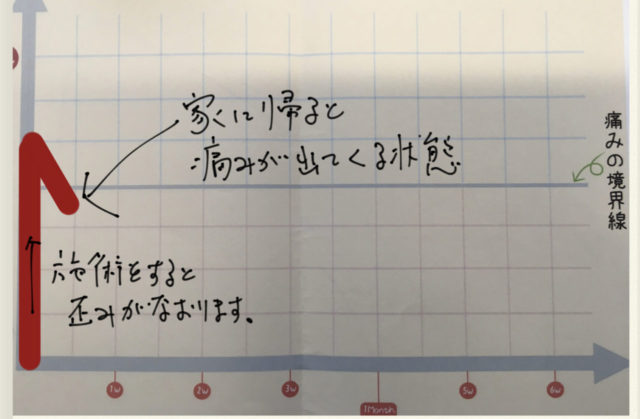 家に帰ると
痛みが出てくる状態
痛みの境界線
施術をすると
歪みがなおります。
1W
2W
3W
1Month
5W
6W